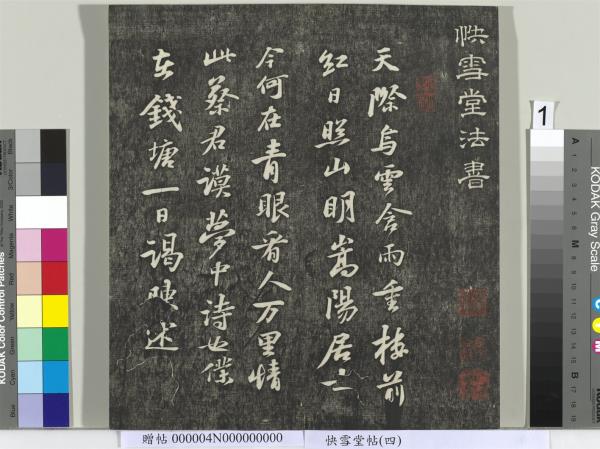 快雪堂法書
天際烏雲含雨重樓前
紅日照山明嵩陽居士
今何在青眼看人万里情
此蔡君謨夢中詩也僕
在錢塘一日謁陳述
贈帖 000004N000000000
快雪堂帖(四)
1
KODAK Gray Scale
A
M
B
C
Y
M
KODAK Color Control Patches
Blue
Cyan
Green
Yellow
Red
Magenta
White
3/Color
Black